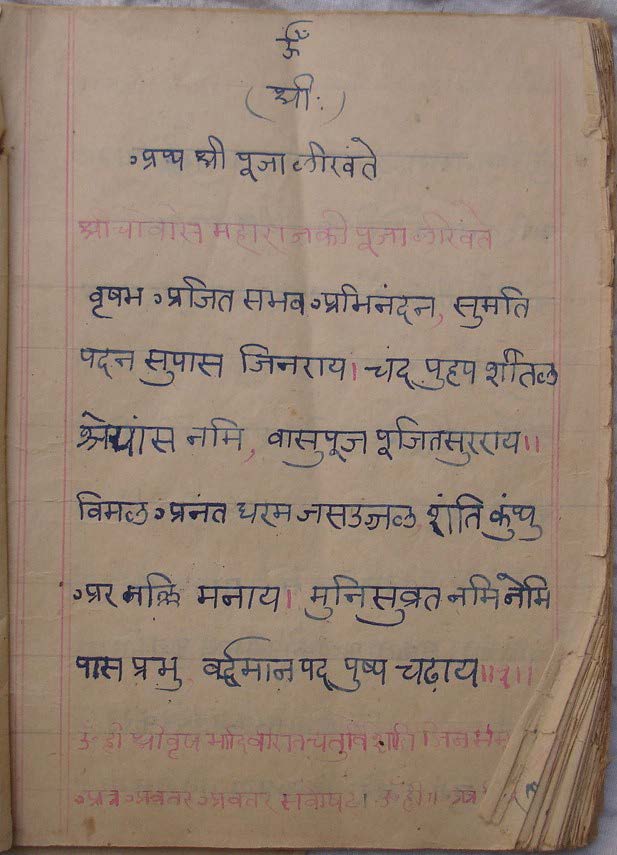 ॐ
(श्री:)
अथ श्री पूजा लीखंते
श्री चोवीस महाराज की पूजा लीखंते
वृषभ अजित संभव अभिनंदन, सुमति
पदम सुपास जिनराय। चंद पुहप शीतल
श्रेयांस नमि, वासुपूज पूजितसुरराय॥
विमल अनंत धरम जसउजल, शांति कुंथु
अर मल्लि मनाय। मुनिसुव्रत नमि नेमि
पास प्रभु, वर्द्धमान पद पुष्प चढ़ाय॥१॥
ॐ ह्री श्री वृषभादिवीरांत चतुर्विंशति जिन
अत्र अवतर अवतर संवोषट। ॐ ह्री॥ अत्र